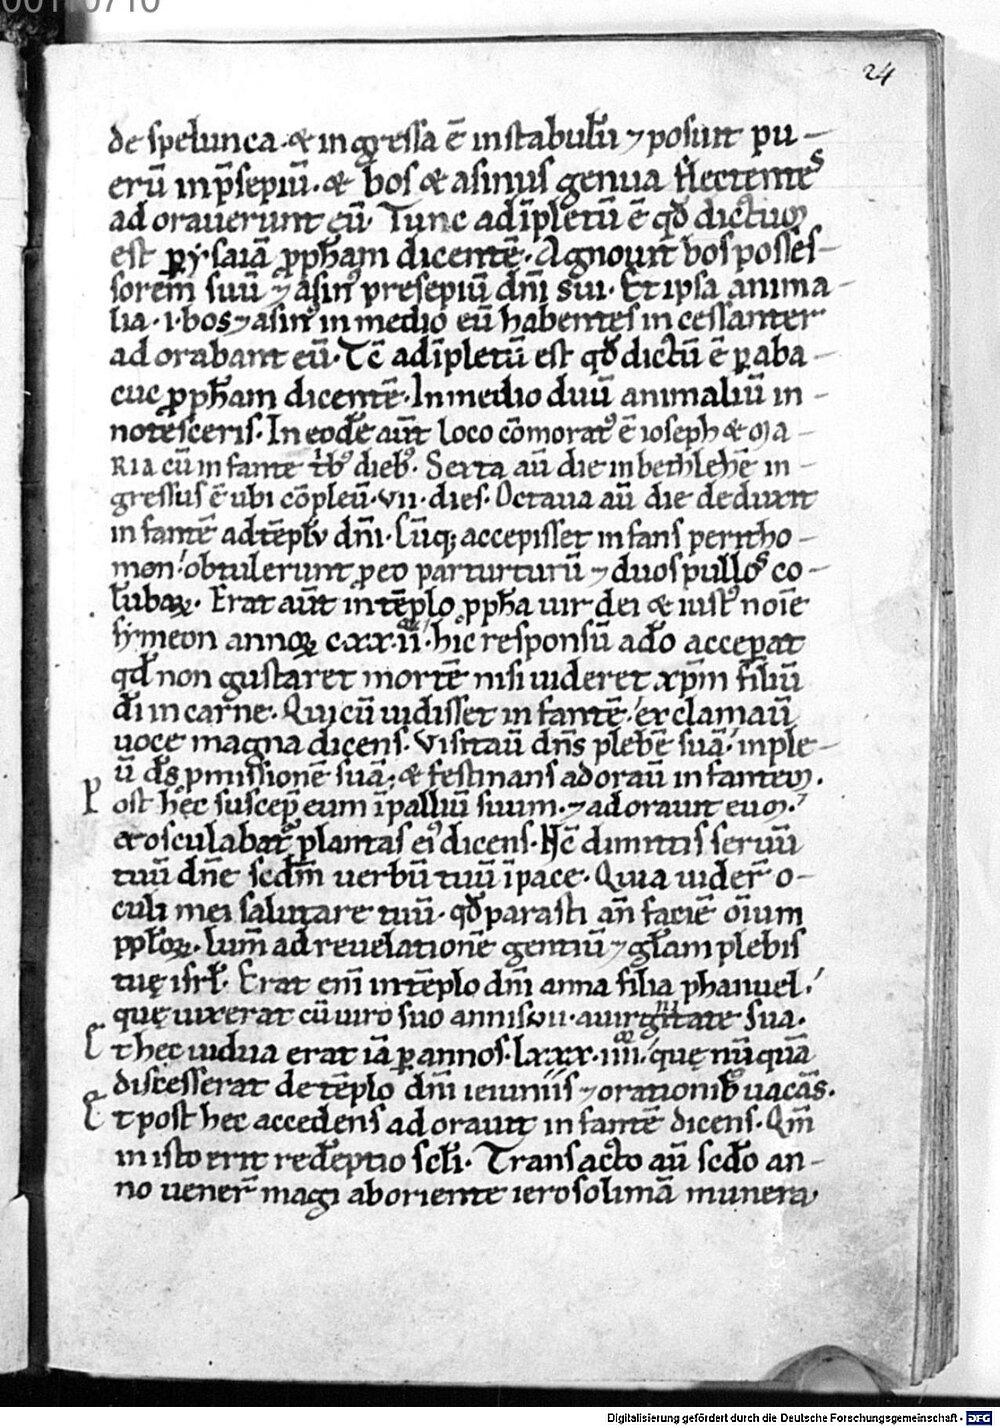 24
de spelunca · & ingressa ē instabulū ⁊ posuit pu-
erū inp̄sepiū · & bos & asinus genua flectentes
adorauerunt eū · Tunc adīpletū ē qd̄ dictum
est ꝑ ysaiā ꝓph̄am dicentē · Agnouit bos posses-
sorem suū ⁊ asin᷒ presepiū dn̄i sui · Et ipsa anima-
lia · i · bos ⁊ asin᷒ in medio eū habentes incessanter
adorabant eū · Tc̄ adīpletū est qd̄ dictū ē ꝑ aba-
cuc ꝓph̄am dicentē · In medio duū animaliū in-
notesceris · In eodē aūt loco cōmorat᷒ ē ioseph & ma-
ria cū infante trib᷒ dieb᷒ · Sexta aū die in bethleħē in-
gressus ē ubi cōpleū · vii · dies · Octaua aū die deduxit
infantē ad tēplū dn̄i · Cūq; accepisset infans perитho-
mon · obtulerunt ꝓ eo par turturū ⁊ duos pullos co-
lūbaꝝ · Erat aūt in tēplo ꝓph̄a uir dei & iust᷒ noīe
symeon annoꝝ cxx·ii · hic responsū a dō acceperat
qd̄ non gustaret mortē nisi uideret xp̄m filiū
dī in carne · Qui cū uidisset infantē · exclamaū
uoce magna dicens · Visitaū dn̄s plebē suā · imple-
ū ds̄ ꝓmissionē suā · & festinans adoraū infantem ·
Post hęc suscep̄ eum ī palliū suum · ⁊ adorauit eum ·
et osculabat᷑ plantas ei᷒ dicens · Nc̄ dimittis seruū
tuū dn̄e scdm̄ uerbū tuū ī pace · Quia uider̄ o-
culi mei salutare tuū · qd̄ parasti an̄ faciē oīum
pplōꝝ · lum̄ ad reuelationē gentiū ⁊ gl̄am plebis
tuę isrl̄ · Erat eni᷒ in tēplo dn̄i anna filia phanuel ·
quę uixerat cū uiro suo annis vii · a uirginitate sua ·
Et hęc uidua erat iā ꝑ annos · lxxx · iiii · quę nūquā
discesserat de tēplo dn̄i ieiuniis ⁊ orationib᷒ uacās ·
Et post hec accedens adorauit infantē dicens · Qm̄
in isto erit redēptio scl̄i · Transacto aū scdō an-
no uener̄ magi ab oriente ierosolimā munera
Digitalisierung gefördert durch die Deutsche Forschungsgemeinschaft - DFG